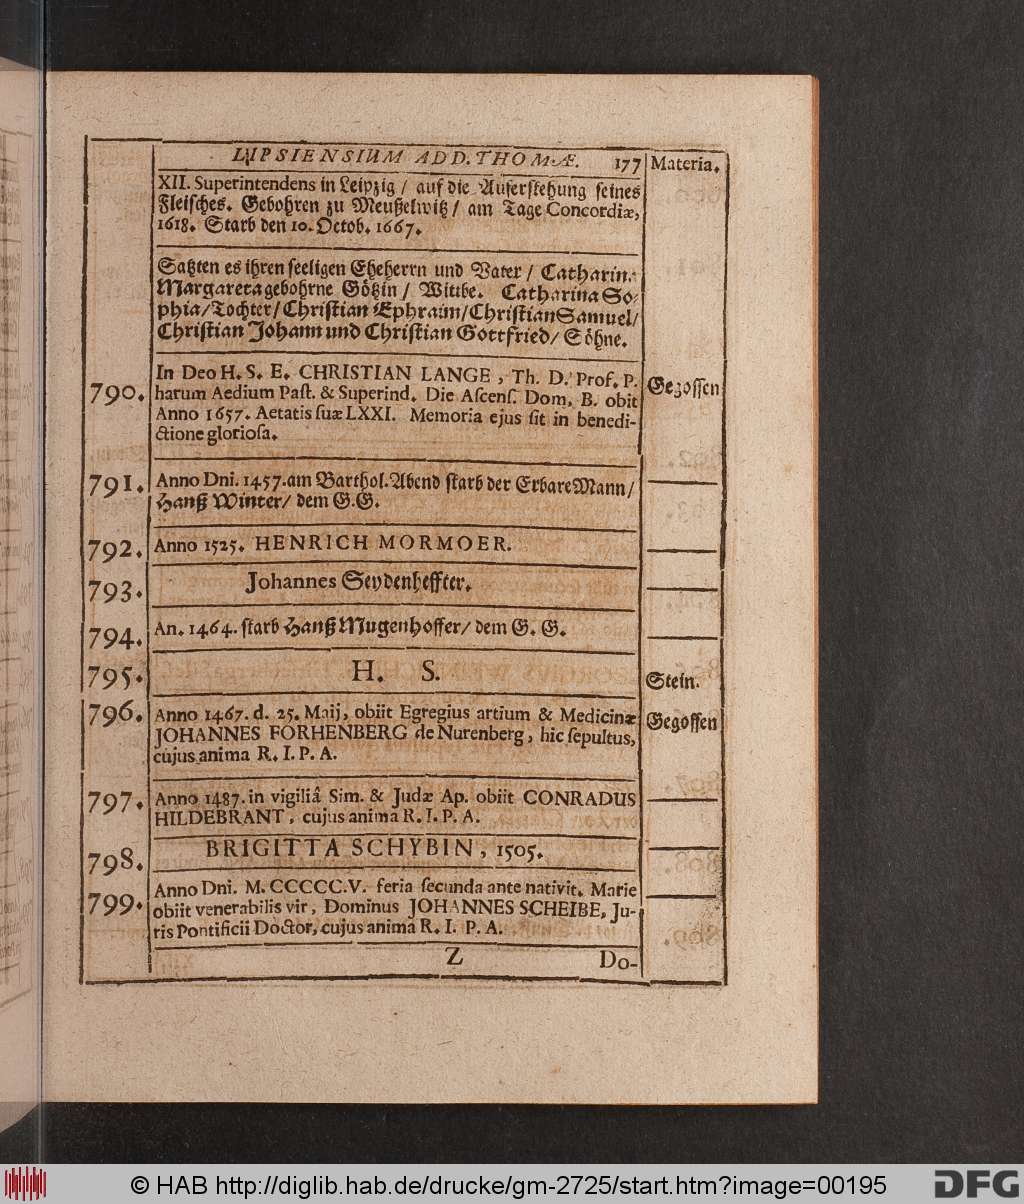 LIPSIENSIUM ADD. THOMÆ. 177 Materia.
XII. Superintendens in Leipzig / auf die Auferstehung seines
Fleisches. Gebohren zu Meußelwitz / am Tage Concordiæ,
1618. Starb den 10. Octob. 1667.
Satzten es ihren seeligen Eheherrn und Vater / Catharina
Margareta gebohrne Götzin / Wittbe. Catharina So-
phia / Tochter / Christian Ephraim / Christian Samuel /
Christian Johann und Christian Gottfried / Söhne.
In Deo H. S. E. CHRISTIAN LANGE, Th. D. Prof. P.
790. harum Aedium Past. & Superind. Die Ascens. Dom. B. obit Gegossen
Anno 1657. Aetatis suæ LXXI. Memoria ejus sit in benedi-
ctione gloriosa.
791. Anno Dni. 1457. am Barthol. Abend starb der Erbare Mann /
Hanß Winter / dem G. G.
792. Anno 1525. HENRICH MORMOER.
793. Johannes Seydenheffter.
794. An. 1464. starb Hanß Mugenhoffer / dem G. G.
795. H. S. Stein.
796. Anno 1467. d. 25. Maij, obiit Egregius artium & Medicinæ Gegossen
JOHANNES FORHENBERG de Nurenberg, hic sepultus,
cujus anima R. I. P. A.
797. Anno 1487. in vigiliâ Sim. & Judæ Ap. obiit CONRADUS
HILDEBRANT, cujus anima R. I. P. A.
798. BRIGITTA SCHYBIN, 1505.
799. Anno Dni. M. CCCCC. V. feria secunda ante nativit. Marie
obiit venerabilis vir, Dominus JOHANNES SCHEIBE, Ju-
ris Pontificii Doctor, cujus anima R. I. P. A.
Z Do-
© HAB http://diglib.hab.de/drucke/gm-2725/start.htm?image=00195
DFG